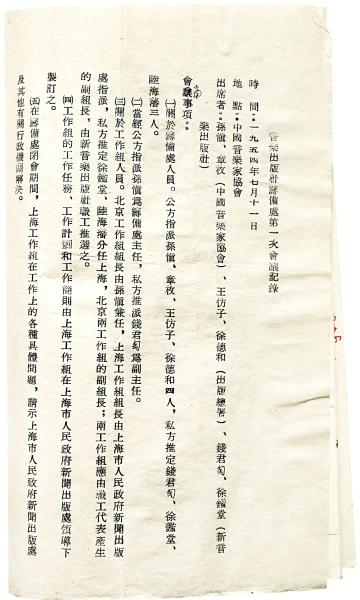 音樂出版社籌備處第一次會議記錄
時　間：一九五四年七月十一日
地　點：中國音樂家協會
出席者：孫愼、章枚（中國音樂家協會）、王仿子、徐德和（出版總署）、錢君匋、徐鑑堂（新音
樂出版社）
會議事項：
㈠關於籌備處人員。公方指派孫愼、章枚、王仿子、徐德和四人，私方推定錢君匋、徐鑑堂、
陸海藩三人。
㈡當經公方指派孫愼爲籌備處主任，私方推派錢君匋爲副主任。
㈢關於工作組人員。北京工作組組長由孫愼兼任，上海工作組組長由上海市人民政府新聞出版
處指派，私方推定徐鑑堂、陸海藩分任上海，北京兩工作組的副組長；兩工作組應由職工代表產生
的副組長，由新音樂出版社職工推選之。
㈣工作組的工作任務、工作計劃和工作細則由上海工作組在上海市人民政府新聞出版處領導下
製訂之。
㈤在籌備處閉會期間，上海工作組在工作上的各種具體問題，請示上海市人民政府新聞出版處
及其他有關行政機關解決。